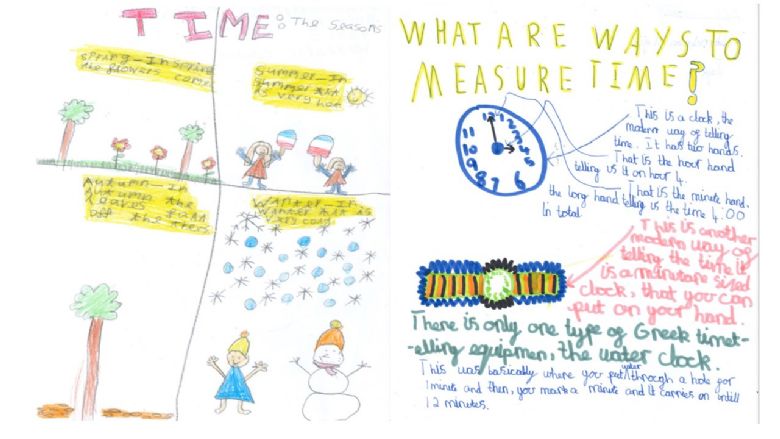 TIME: The Seasons
Spring - In spring
the flowers come
Summer - In
summer
is very hot
Autumn - In
autumn the
leaves fall
off the
Winter - In
very cold
WHAT ARE WAYS TO
MEASURE TIME?
12 1 2 3 4 5 6 7 8 9 10 11
This is a clock, the
modern way of telling
time. It has two hands.
That is the hour hand
telling us it on hour 4.
That is the minute hand.
the long hand telling us the time 4:00
In total
This is another
modern way of
telling the time it
is a miniture sized
clock, that you can
put on your hand.
There is only one type of Greek timet-
-elling equipmen, the water clock.
This was basically where you put water through a hole for
1 minute and then, you mark a minute and it carries on untill
12 minutes.